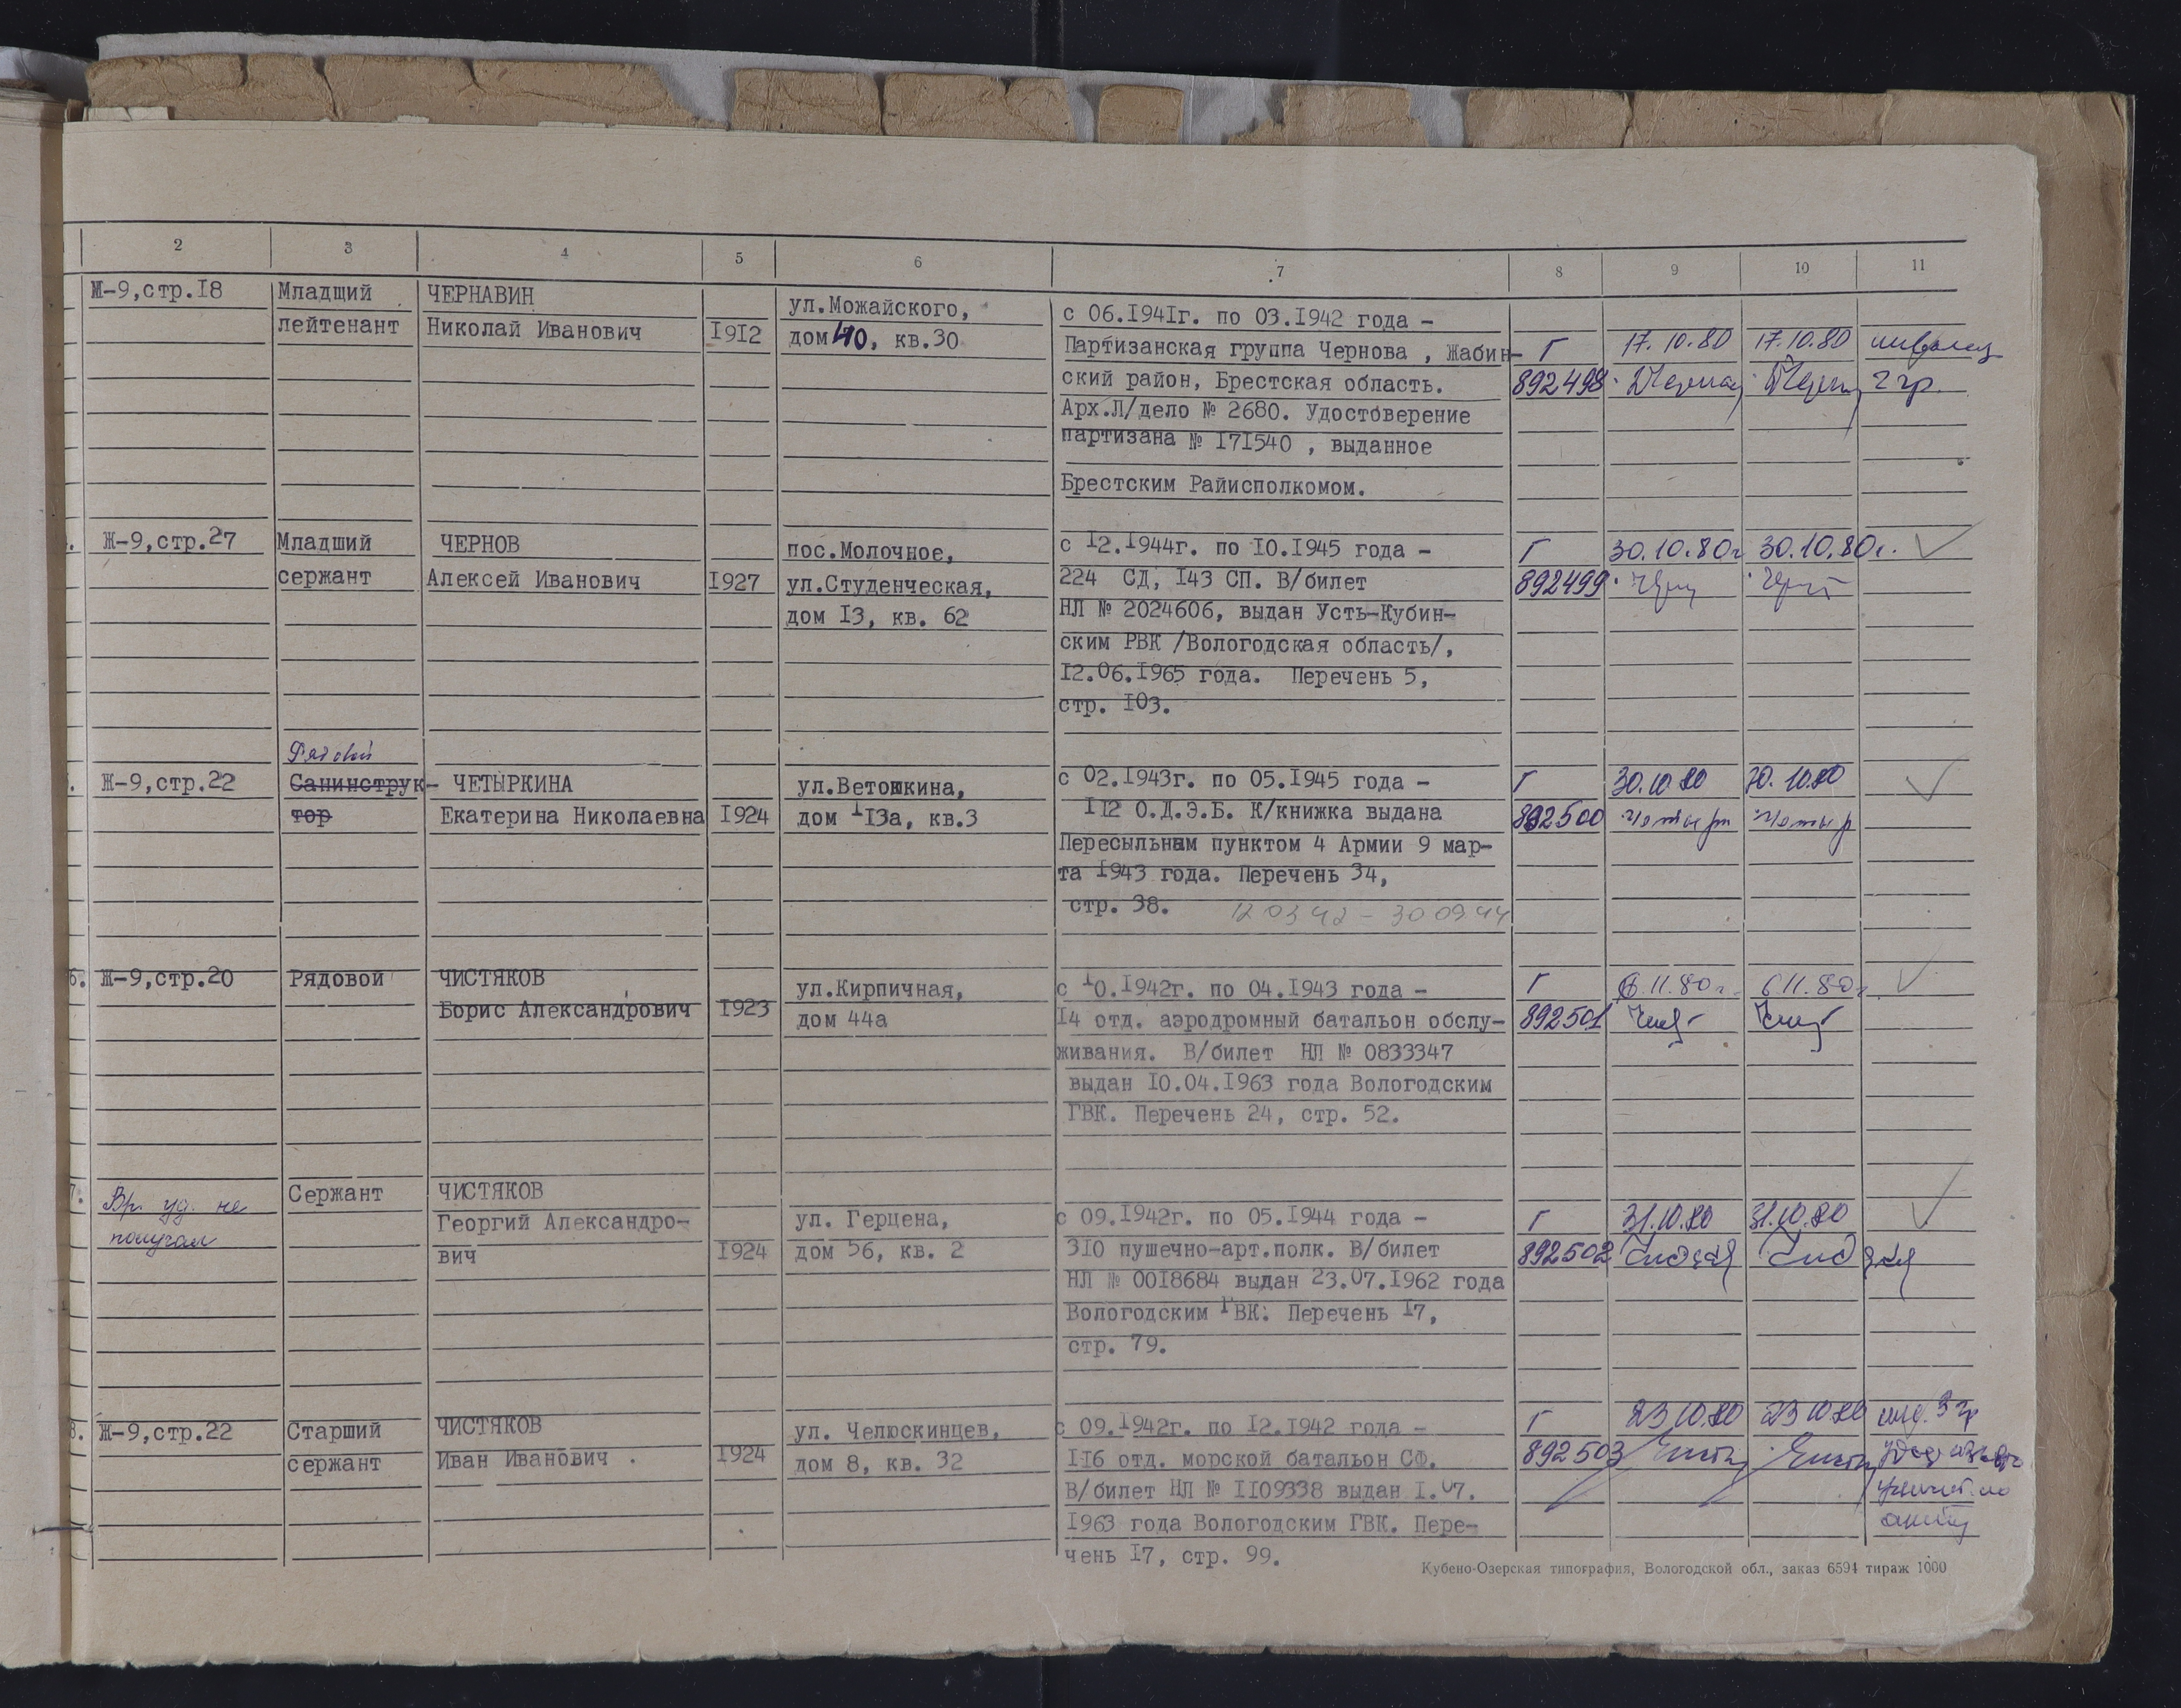 2 3 4 5 6 7 8 9 10 11
Ж-9,стр.18 Младший ЧЕРНАВИН
лейтенант Николай Иванович 1912
ул.Можайского,
дом 40, кв.30
с 06.1941г. по 03.1942 года -
Партизанская группа Чернова , Жабин-
ский район, Брестская область.
Арх.Л/дело № 2680. Удостоверение
партизана № 171540 , выданное
Брестским Райисполкомом.
Г 17.10.80 17.10.80 инвалид
892498 2 гр.
Ж-9,стр.27 Младший ЧЕРНОВ
сержант Алексей Иванович 1927
пос.Молочное,
ул.Студенческая,
дом 13, кв. 62
с 12.1944г. по 10.1945 года -
224 СД, 143 СП. В/билет
НЛ № 2024606, выдан Усть-Кубин-
ским РВК /Вологодская область/,
12.06.1965 года. Перечень 5,
стр. 103.
Г 30.10.80г 30.10.80г.
892499
Рядовой
Ж-9,стр.22 Санинструк- ЧЕТЫРКИНА
тор Екатерина Николаевна 1924
ул.Ветошкина,
дом 113а, кв.3
с 02.1943г. по 05.1945 года -
112 О.Д.Э.Б. К/книжка выдана
Пересыльным пунктом 4 Армии 9 мар-
та 1943 года. Перечень 34,
стр. 38. 12 03 42 - 30 09 44
Г 30.10.80 30.10.80
892500 Четырк Четыр
6. Ж-9,стр.20 Рядовой ЧИСТЯКОВ
Борис Александрович 1923
ул.Кирпичная,
дом 44а
с 10.1942г. по 04.1943 года -
14 отд. аэродромный батальон обслу-
живания. В/билет НЛ № 0833347
выдан 10.04.1963 года Вологодским
ГВК. Перечень 24, стр. 52.
Г 6.11.80г. 6.11.80г.
892501
7. Вр. уд. не
получал
Сержант ЧИСТЯКОВ
Георгий Александро-
вич 1924
ул. Герцена,
дом 56, кв. 2
с 09.1942г. по 05.1944 года -
310 пушечно-арт.полк. В/билет
НЛ № 0018684 выдан 23.07.1962 года
Вологодским ГВК. Перечень 17,
стр. 79.
Г 31.10.80 31.10.80
892502
8. Ж-9,стр.22 Старший ЧИСТЯКОВ
сержант Иван Иванович . 1924
ул. Челюскинцев,
дом 8, кв. 32
с 09.1942г. по 12.1942 года -
116 отд. морской батальон СФ.
В/билет НЛ № 1109338 выдан 1.07.
1963 года Вологодским ГВК. Пере-
чень 17, стр. 99.
Г 23.10.80 23.10.80 инд. 3 гр
892503
Кубено-Озерская типография, Вологодской обл., заказ 6594 тираж 1000